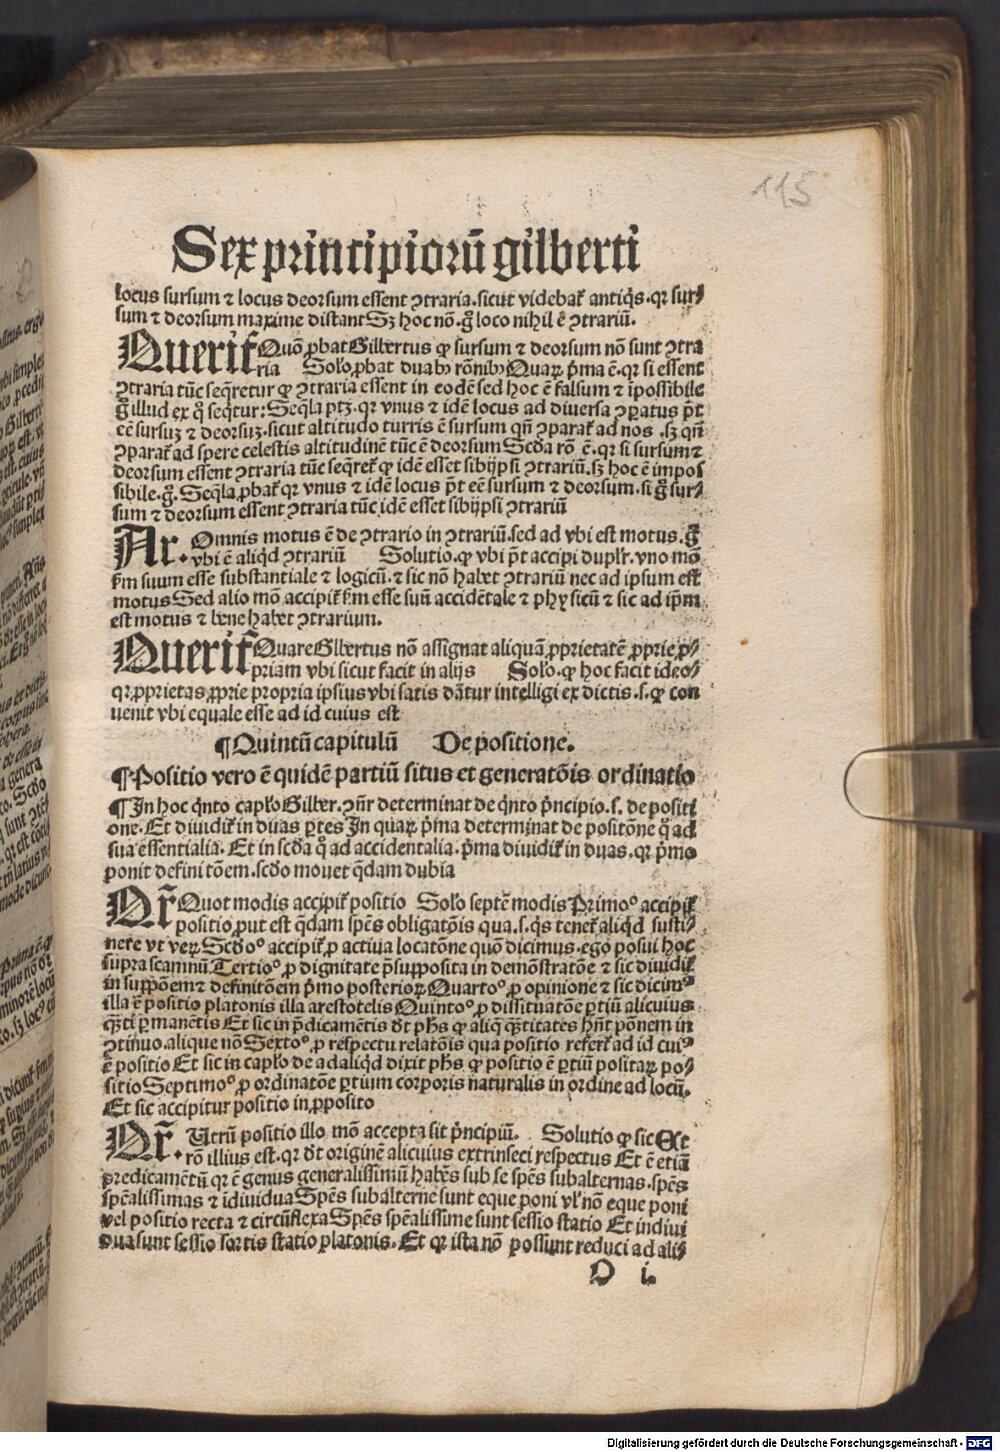 115
Sex principiorū gilberti
locus sursum ⁊ locus deorsum essent ꝯtraria.sicut videbaꝉ antiq̄s.qꝛ sur⸗
sum ⁊ deorsum maxime distant Sꝫ hoc nō.gͦ loco nihil ē ꝯtrariū.
Querit̉ Quō ꝓbat Gilbertus ꝙ sursum ⁊ deorsum nō sunt ꝯtra
ria Solo.ꝓbat duabꝰ rōnibꝰ Quaꝝ p̄ma ē.qꝛ si essent
ꝯtraria tūc seq̄retur ꝙ ꝯtraria essent in eodē sed hoc ē falsum ⁊ īpossibile
gͦ illud ex qͦ seq̄tur: Seq̄la ptꝫ.qꝛ vnus ⁊ idē locus ad diuersa ꝯꝑatus p̄t
eē sursuꝫ ⁊ deorsuꝫ.sicut altitudo turris ē sursum qn̄ ꝯparat̉ ad nos .sꝫ qn̄
ꝯparat̉ ad spere celestis altitudinē tūc ē deorsum Scd̄a rō ē.qꝛ si sursum ⁊
deorsum essent ꝯtraria tūc seq̄ret̉ ꝙ idē esset sibijpsi ꝯtrariū.sꝫ hoc ē impos
sibile.gͦ. Seq̄la ꝓbat̉ qꝛ vnus ⁊ idē locus p̄t eē sursum ⁊ deorsum.si gͦ sur⸗
sum ⁊ deorsum essent ꝯtraria tūc idē esset sibijpsi ꝯtrariū
Ar. Omnis motus ē de ꝯtrario in ꝯtrariū.sed ad vbi est motus.gͦ
vbi ē aliqͥd ꝯtrariū Solutio.ꝙ vbi p̄t accipi duplr̄.vno mō
ẜm suum esse substantiale ⁊ logicū.⁊ sic nō habet ꝯtrariū nec ad ipsum est
motus Sed alio mō accipit̉ ẜm esse suū accidētale ⁊ physicū ⁊ sic ad ip̄m
est motus ⁊ bene habet ꝯtrarium.
Querit̉ Quare Glbertus nō assignat aliquā ꝓprietatē ꝓprie ꝓ⸗
priam vbi sicut facit in alijs Solo.ꝙ hoc facit ideo⸗
qꝛ ꝓprietas ꝓprie propria ipsius vbi satis dāntur intelligi ex dictis.s.ꝙ con
uenit vbi equale esse ad id cuius est
¶Quintū capitulū De positione.
¶Positio vero ē quidē partiū situs et generatōis ordinatio
¶In hoc qͥnto caplo Gilber.ꝯn̄r determinat de qͥnto p̄ncipio.s.de positi
one.Et diuidit̉ in duas ꝑtes In quaꝝ p̄ma determinat de positōne qͦ ad
sua essentialia. Et in scd̄a qͦ ad accidentalia. p̄ma diuidit̉ in duas.qꝛ p̄mo
ponit definitōem.scd̄o mouet qͥdam dubia
Qr̄ Quot modis accipit̉ positio Solo septē modis Primoͦ accipit̉
positio ꝓut est qͥdam spēs obligatōis qua.s.qͥs tenet̉ aliqͥd susti⸗
nere vt veꝝ Scd̄oͦ accipit̉ ꝓ actiua locatōne quō dicimus.ego posui hoc
supra scamnū Tertioͦ ꝓ dignitate p̄supposita in demōstratōe ⁊ sic diuidit̉
in suppōem ⁊ definitōem p̄mo posterioꝝ Quartoͦ ꝓ opinione ⁊ sic dicimꝰ
illa ē positio platonis illa arestotelis Quintoͦ ꝓ dissituatōe ꝑtiū alicuius
qͣ̄ti ꝑmanētis Et sic in p̄dicamētis dr̄t ph̄s ꝙ aliq̄ qͣ̄titates hn̄t pōnem in
ꝯtinuo.alique nō Sextoͦ ꝓ respectu relatōis qua positio refert̉ ad id cuiꝰ
ē positio Et sic in caplo de ad aliqͥd dixit ph̄s ꝙ positio ē ꝑtiū positaꝝ po⸗
sitio Septimoͦ ꝓ ordinatōe ꝑtium corporis naturalis in ordine ad locū.
Et sic accipitur positio in ꝓposito
Qr̄. Utrū positio illo mō accepta sit p̄ncipiū. Solutio ꝙ sic Et
rō illius est.qꝛ dr̄t originē alicuius extrinseci respectus Et ē etiā
predicamētū qꝛ ē genus generalissimū habēs sub se spēs subalternas.spēs
spēalissimas ⁊ īdiuidua Spēs subalterne sunt eque poni vl̄ nō eque poni
vel positio recta ⁊ circūflexa Spēs spēalissime sunt sessio statio Et indiui
dua sunt sessio sortis statio platonis. Et qꝛ ista nō possunt reduci ad ali⸗
O i.
Digitalisierung gefördert durch die Deutsche Forschungsgemeinschaft - DFG